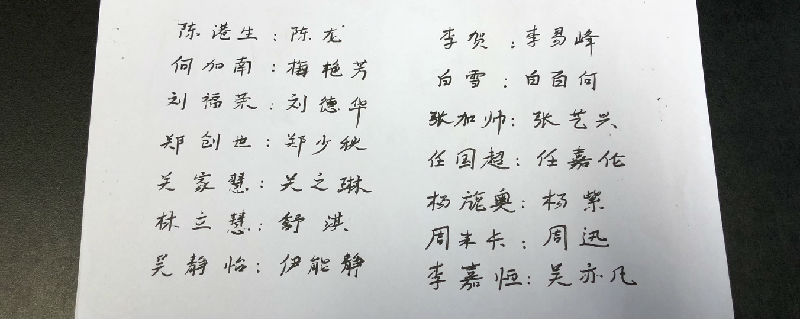 陈港生：陈龙
何加南：梅艳芳
刘福荣：刘德华
郑创世：郑少秋
关家慧：关之琳
林立慧：舒淇
吴静怡：伊能静
李贺：李易峰
白雪：白百何
张加帅：张艺兴
任国超：任嘉伦
杨旎奥：杨紫
周末卡：周迅
李嘉恒：吴亦凡